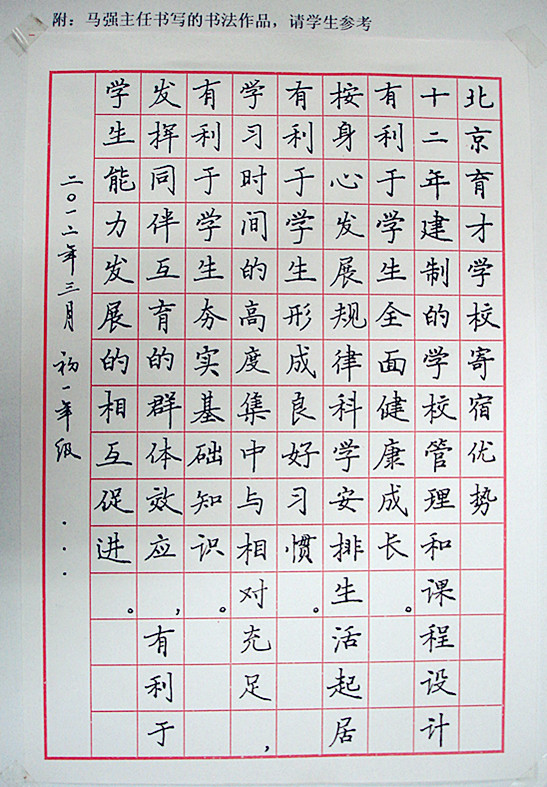 附：马强主任书写的书法作品，请学生参考
北京育才学校寄宿优势
十二年建制的学校管理和课程设计
有利于学生全面健康成长。
按身心发展规律科学安排生活起居
有利于学生形成良好习惯。
学习时间的高度集中与相对充足，
有利于学生夯实基础知识。
发挥同伴互育的群体效应，有利于
学生能力发展的相互促进。
二〇一二年三月 初一年级...